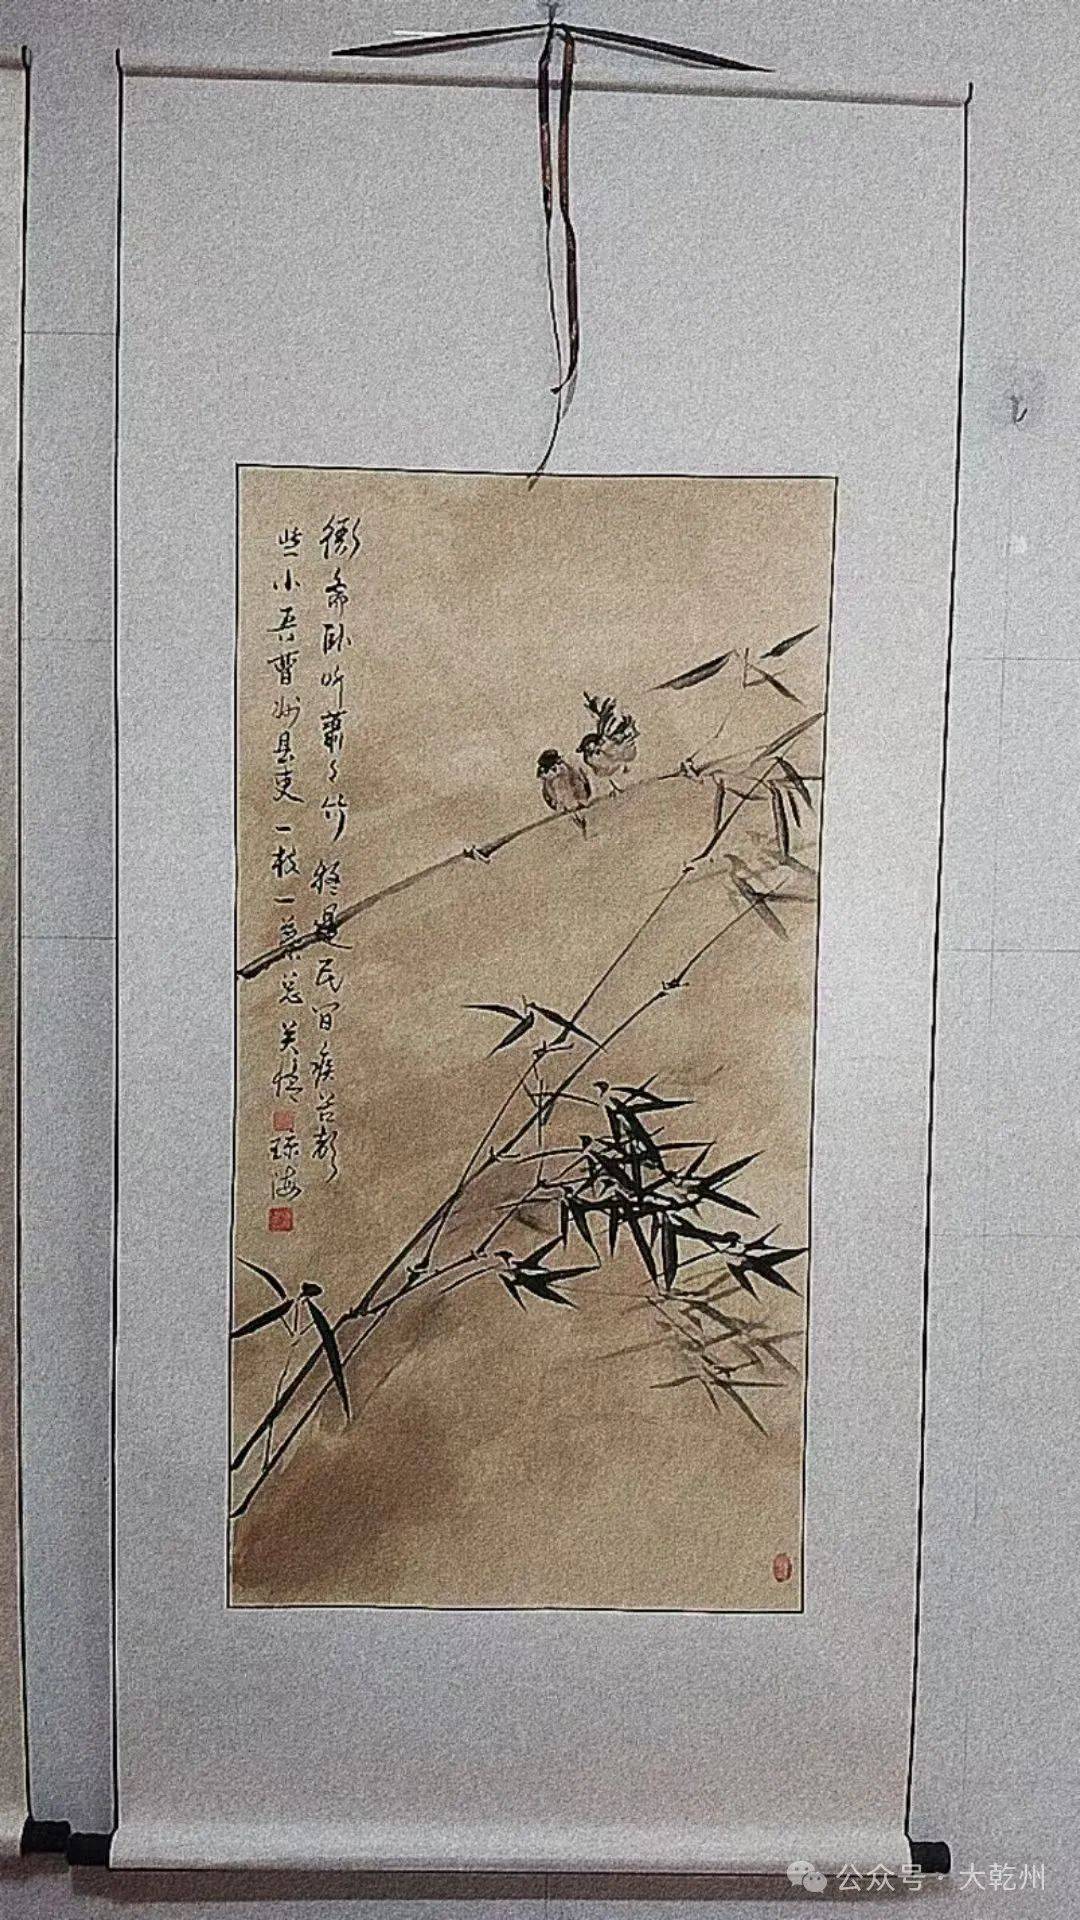 衙斋卧听萧々竹 疑是民间疾苦声
些小吾曹州县吏一枝一叶总关情
琼海
公众号·大乾州